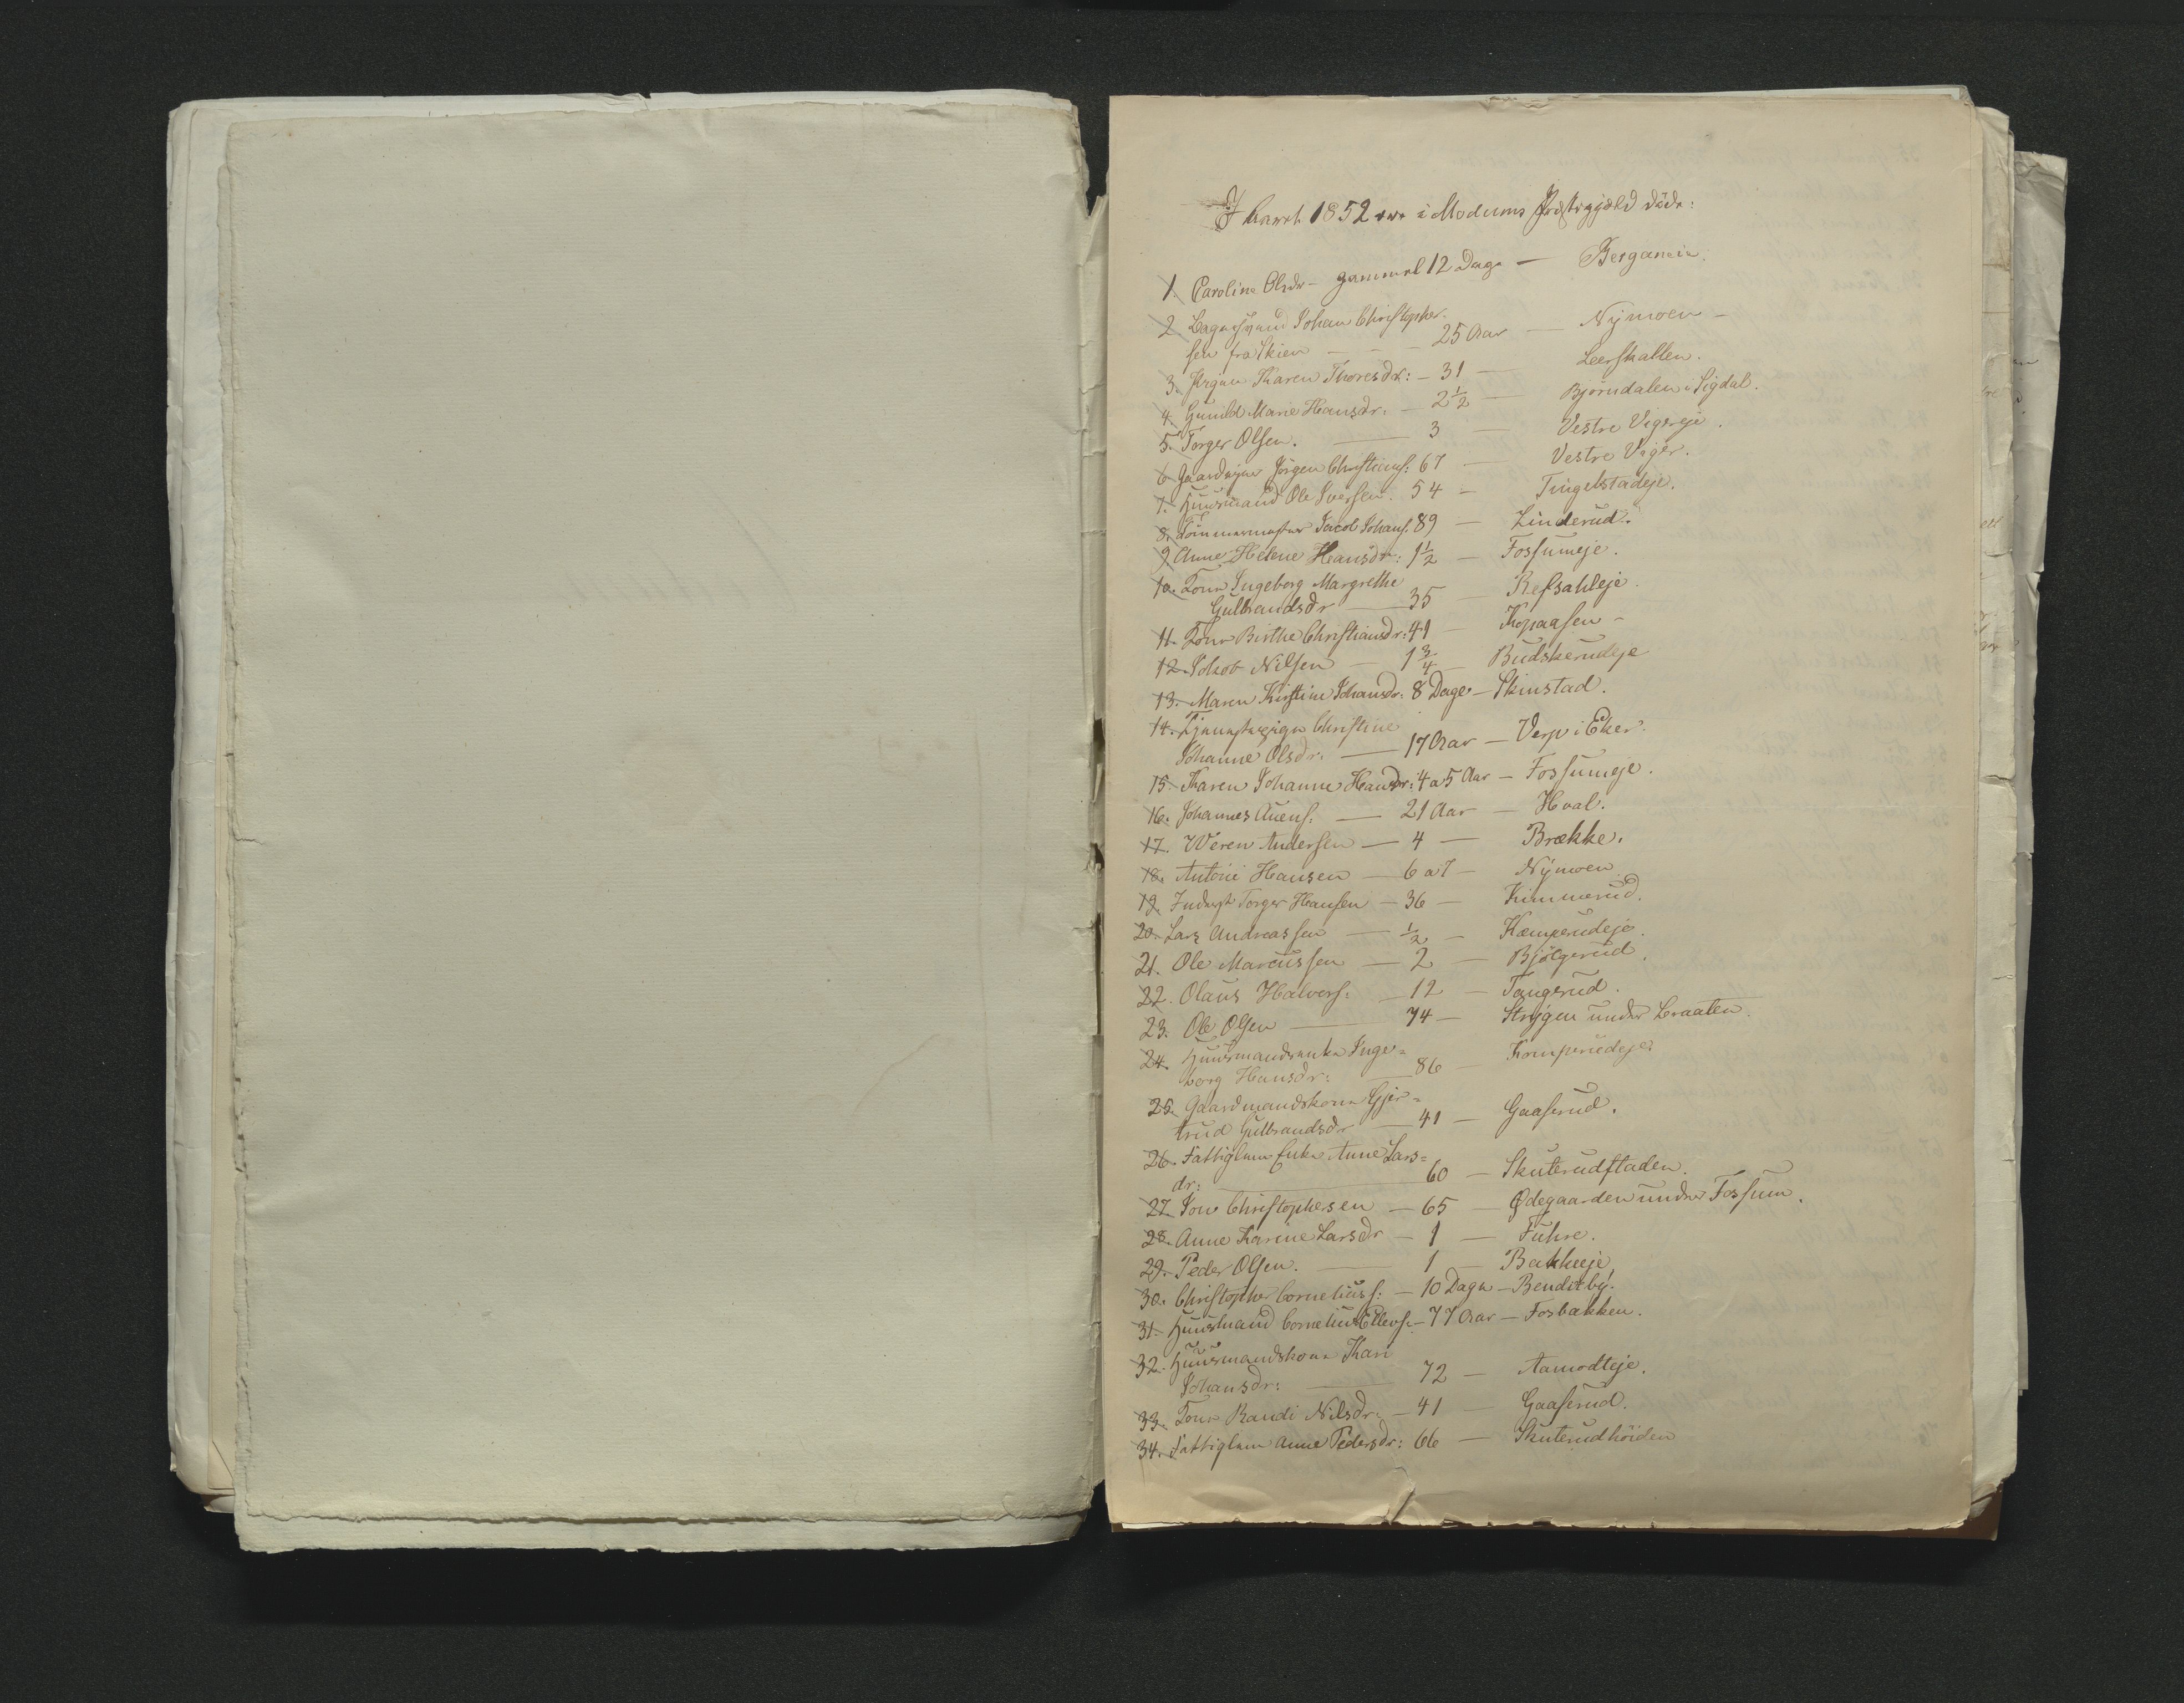 I Aaret 1852 ere i Modums Præstegjæld døde:
1. Caroline Olsdr - gammel 12 Dage — Bergan
2. Johan Christopher-
sen fra Skien — — 25 Aar — Nymoen -
3. Pigen Karen Thoresdr: - 31 — Leerskallen.
4. Gunild Marie Hansdr. - 2½ — Bjørndalen i Sigdal.
5. Torger Olsen. — 3 — Vestre Vigereje.
6. Jörgen Christians: 67 — Vestre Viger.
7. Huusmand Ole Iversen. 54 - Tingelstadeje.
8. Tømmermester Jacob Johans. 89 — Linderud.
9. Anne Helene Hansdr: 1½ — Fossumeje.
10. Kone Ingeborg Margrethe
Gulbrandsdr — 35 — Refsahleje.
11. Kone Birthe Christiansdr: 41 — Kopaasen -
12. Jakob Nilsen — 1¾ — Budskerudeje
13. Maren Kirstine Johansdr: 8 Dage - Skinstad.
14. Tjenestepige Christine
Johanne Olsdr. — 17 Aar — Verp i Eker.
15. Karen Johanne Hansdr: 4 a 5 Aar — Fossumeje.
16. Johannes Auens: — 21 Aar — Hval.
17. Weren Andersen — 4 — Brække.
18. Antoni Hansen — 6 a 7 — Nymoen
19. Inderst Torger Hansen — 36 — Kimmerud.
20. Lars Andreassen — ½ — Kæmperudeje.
21. Ole Marcussen — 2 — Bjølgerud.
22. Olaus Halvors: — 12 — Tangerud.
23. Ole Olsen — 74 — Strygen under Braaten.
24. Huusmandsenke Inge=
borg Hansdr: — 86 — Komperudeje.
25. Gaardmandskone Gjer=
trud Gulbrandsdr — 41 — Gaaserud.
26. Fattiglem Enke Anne Lars=
dr: — 60 — Skuterudfladen.
27. Jon Christophersen — 65 — Ødegaarden under Fossum.
28. Anne Karine Larsdr — 1 — Fuhre.
29. Peder Olsen. — 1 — Bakkeeje,
30. Christopher Corneliuss: — 10 Dage — Bendikby.
31. Huusmand Cornelius Ellevs. - 77 Aar — Fosbakken.
32. Huusmandskone Kari
Johansdr: — 72 — Aamodteje.
33. Kone Randi Nilsdr. — 41 — Gaaserud.
34. Fattiglem Anne Pedersdr: 66 — Skuterudhöiden